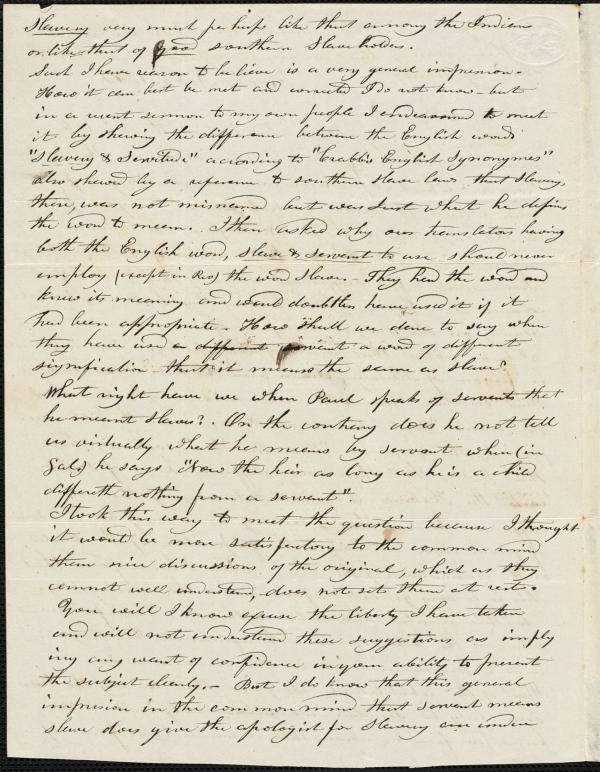 Slavery very much perhaps like that among the Indians
or like that of good southern Slaveholders.
Such I have reason to believe is a very general impression.
How it can best be met and corrected I do not know - but
in a recent sermon to my own people I endeavored to meet
it by shewing the difference between the English words
"Slavery & Servitude" according to "Crabb's English Synonymes"
Also shewed by a reference to southern slave laws that slavery,
there, was not misnamed but was just what he defines
the word to mean. I then asked why our translators having
both the English word, slave & servant to use should never
employ (except in Rev) the word slave. - They had the word and
knew its meaning and would doubtless have used it if it
had been appropriate - How shall we dare to say when
they have used a different servant a word of different
signification that it means the same as slave?
What right have we when Paul speaks of servants that
he meant slaves? On the contrary does he not tell
us virtually what he means by servant when (in
Gal.) he says "Now the heir as long as he is a child
differeth nothing from a servant".
I took this way to meet the question because I thought
it would be more satisfactory to the common mind
than nice discussions of the original, which as they
cannot well understand, does not set them at rest.
You will I know excuse the liberty I have taken
and will not understand these suggestions as imply
ing any want of confidence in your ability to present
the subject clearly. - But I do know that this general
impression in the common mind that servant means
slave does give the apologist for slavery an undue